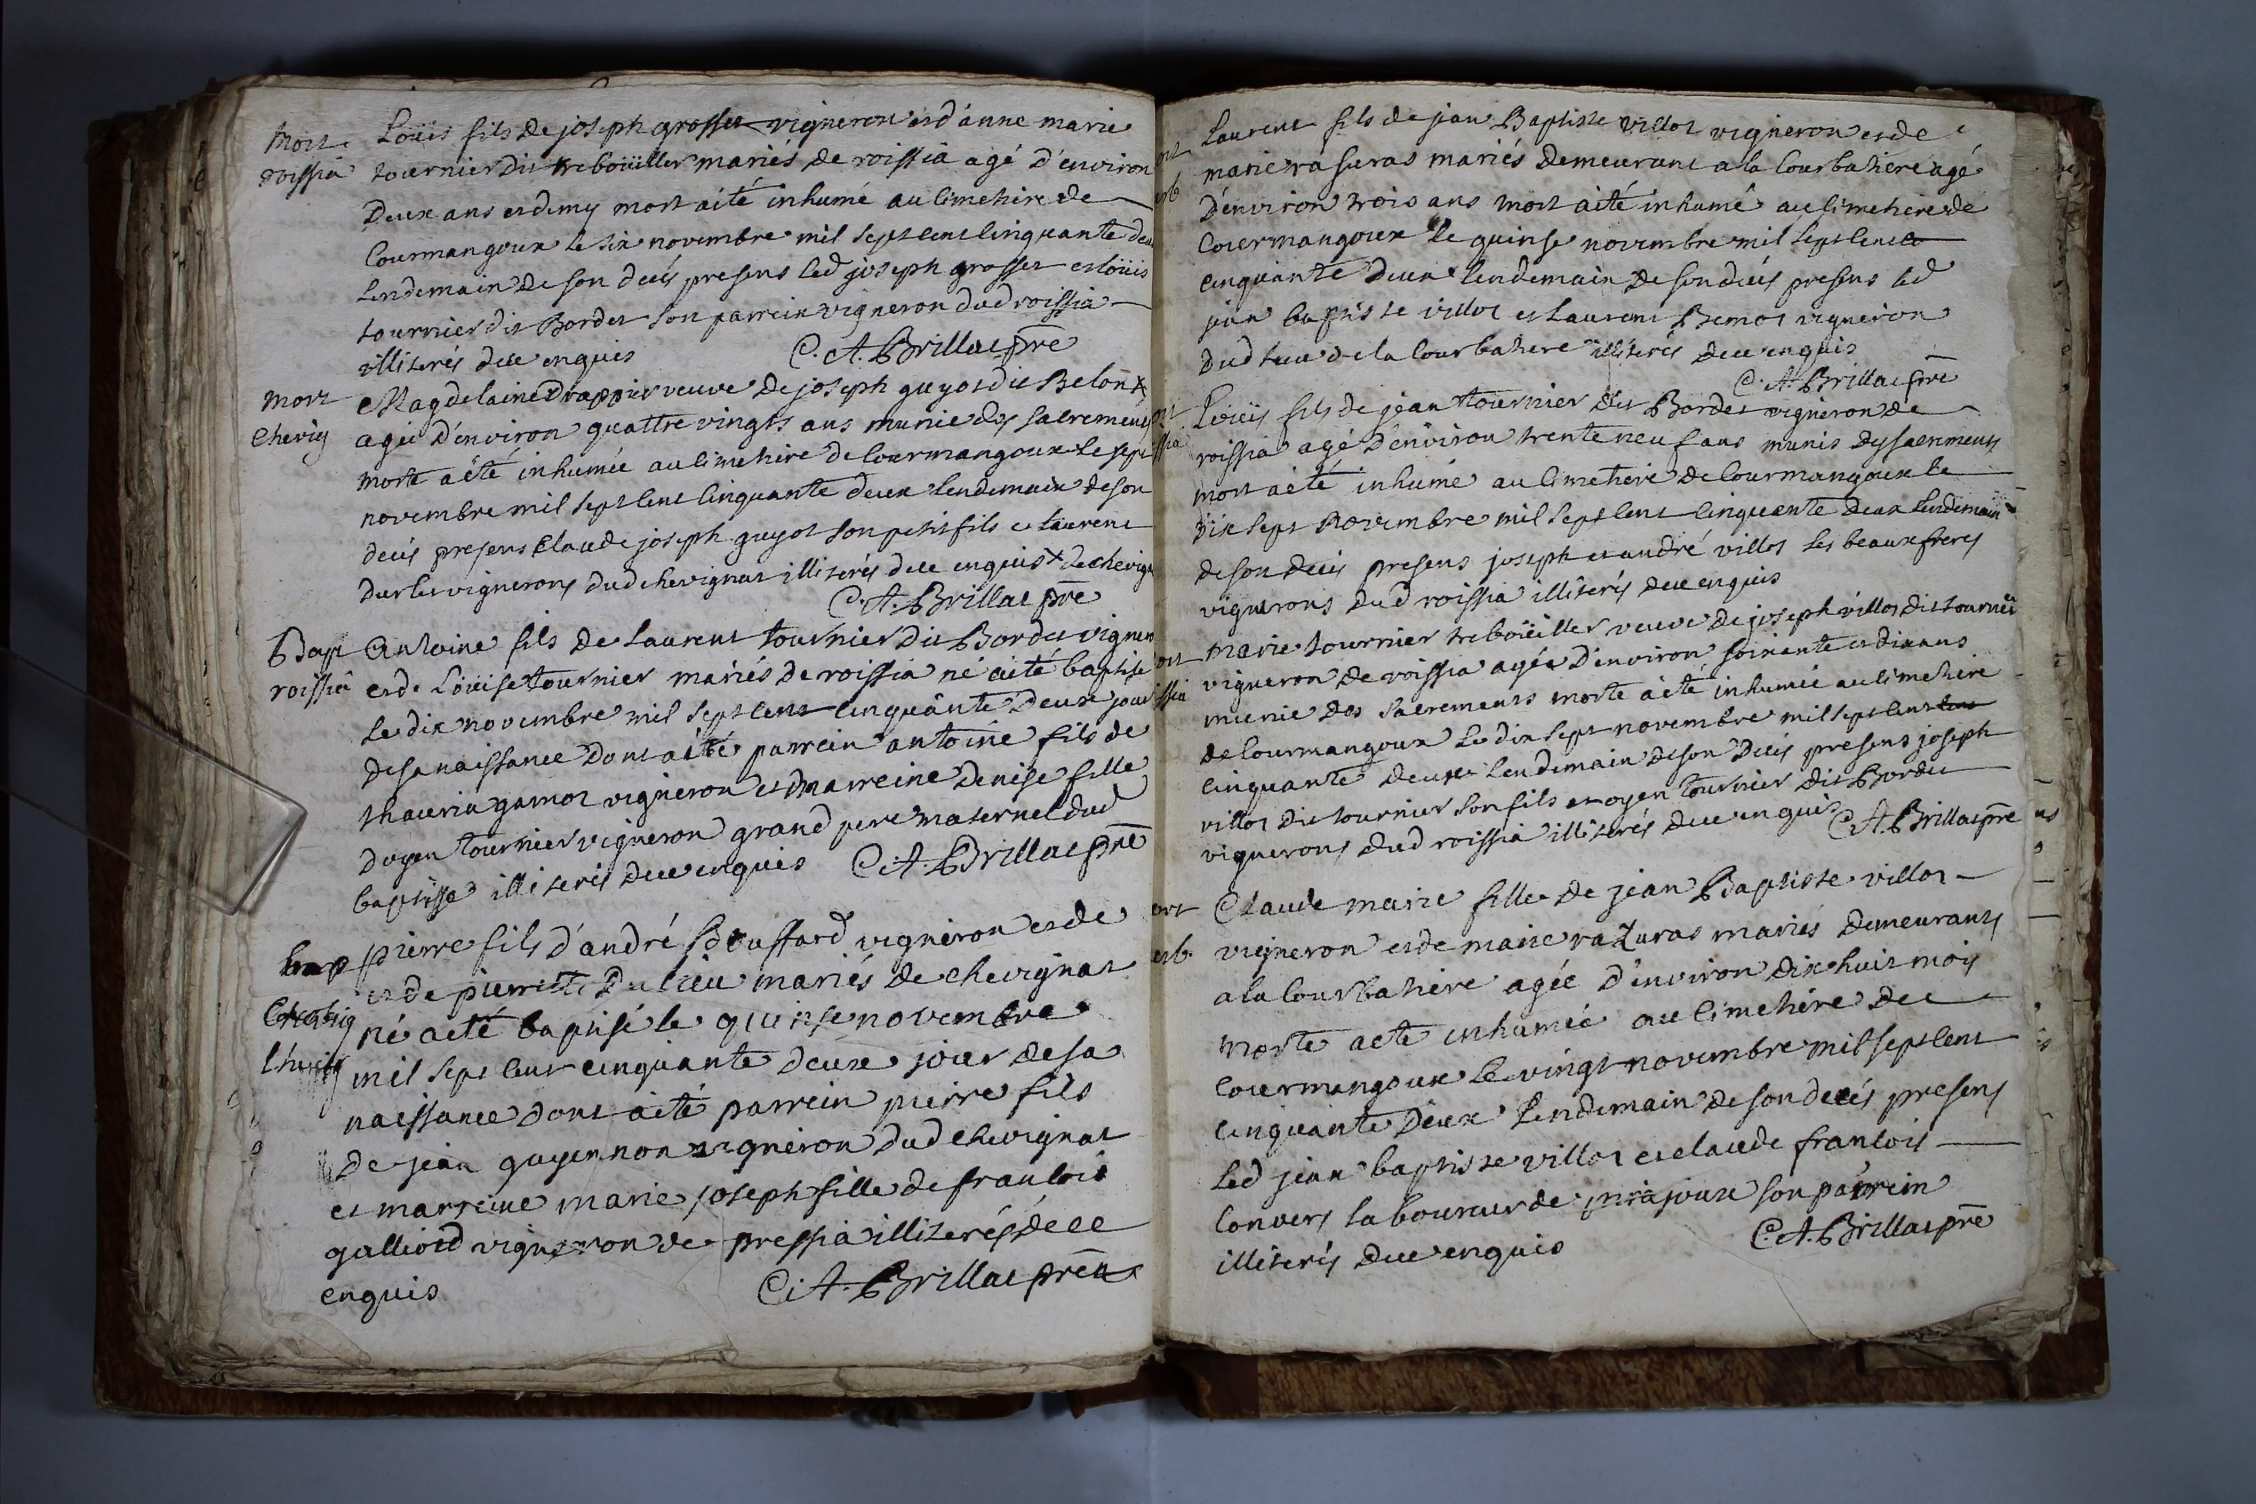 Mort
roissia
Loüis fils de joseph grosset vigneron et d'anne marie
tournier dit treboüiller mariés de roissia agé d'environ
Deux ans et demy mort a été inhumé au cimetiere de
Courmangoux le six novembre mil sept cent cinquante deux
lendemain de son decés presens led joseph grosset et loüis
tournier dit Bordet son parrein vigneron dud roissia
illiterés de ce enquis C. A. Brillat pre
Mort
chevig
Magdelaine Drappier veuve de joseph guyot dit Belon x
agée d'environ quattre vingts ans munie des sacremens
morte a été inhumée au cimetiere de Courmangoux le sept
novembre mil sept cent cinquante deux lendemain de son
decés presens Claude joseph guyot son petit fils et laurent
vignerons dud chevignat illiterés de ce enquis x de chevig
C. A. Brillat pre
Bapt
roissia
Antoine fils de Laurent tournier dit Bordet vigneron
et de Loüise tournier mariés de roissia né a été baptisé
le dix novembre mil sept cent cinquante Deux jour
de sa naissance Dont a été parrein antoine fils de
thaurin gamot vigneron et marreine Denise fille
d'oyen tournier vigneron grand pere maternel dud
baptisé illiterés de ce enquis C. A. Brillat pre
bap
Chevig
pierre fils d'andré Bouffard vigneron et de
et de pierrette Dulieu mariés de chevignat
né a eté baptisé le quinse novembre
mil sept cent cinquante deux jour de sa
naissance dont a été parrein pierre fils
de jean guyennon vigneron dud chevignat
et marreine marie joseph fille de francois
galliord vigneron de pressia illiterés de ce
enquis C. A. Brillat pre
ort
rb
Laurent fils de jean Baptiste villot vigneron et de
marie rasuras mariés demeurant a la Courbatiere agé
d'environ trois ans mort a été inhumé au cimetiere de
Courmangoux le quinse novembre mil sept cent
cinquante deux lendemain de son decés presens led
jean baptiste villot et laurent Bemot vigneron
Dud lieu de la Courbatiere illiterés de ce enquis
C. A. Brillat pre
ort
ssia
Loüis fils de jean tournier dit Bordet vigneron de
roissia agé d'environ trente neuf ans munis des sacremens
mort a été inhumé au cimetiere de Courmangoux le
dix sept Novembre mil sept cent cinquante deux lendemain
de son decés presens joseph et andré villot ses beaux freres
vignerons dud roissia illiterés de ce enquis
ort
ssia
marie tournier treboüiller veuve de joseph villot dit tournier
vigneron de roissia agée d'environ soixante et dix ans
munie des sacrements morte a été inhumée au cimetiere
de Courmangoux le dix sept novembre mil sept cent
cinquante deux lendemain de son decés presens joseph
villot dit tournier son fils et oyen tournier dit Bordet
vignerons dud roissia illiterés de ce enquis C. A. Brillat pre
ort
rb.
Claude marie fille de jean Baptiste villot
vigneron et de marie razuras mariés demeurants
a la Courbatiere agée d'environ dix huit mois
morte a eté inhumée au cimetiere de
Courmangoux le vingt novembre mil sept cent
cinquante deux lendemain de son decés presens
led jean baptiste villot et claude francois
Convers laboureur de pirajoux son parrein
illiterés de ce enquis C. A. Brillat pre